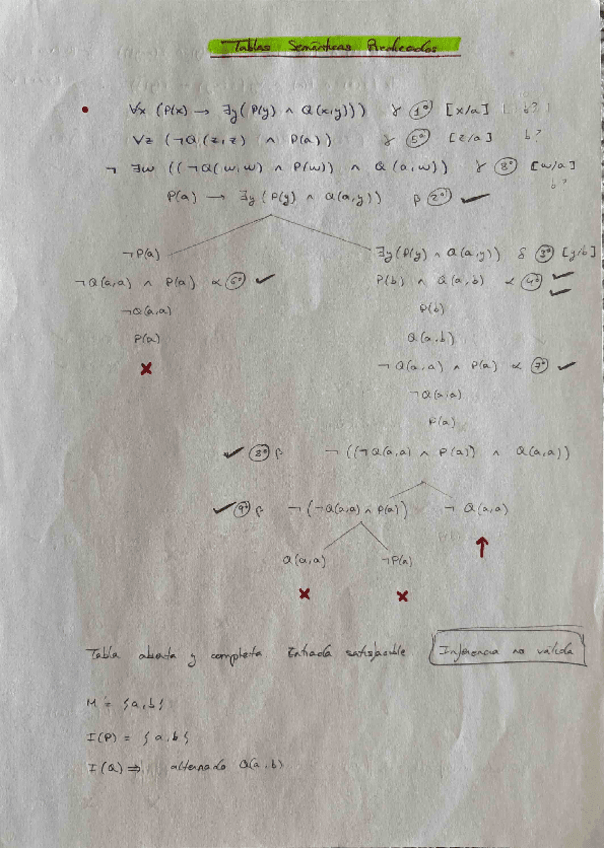 Tablas Semánticas Predicados
∀x (P(x) → ∃y (P(y) ∧ Q(x,y))) γ 1º [x/a] b?
∀z (¬Q(z,z) ∧ P(a)) γ 5º [z/a] b?
¬ ∃w ((¬Q(w,w) ∧ P(w)) ∧ Q(a,w)) γ 8º [w/a] b?
P(a) → ∃y (P(y) ∧ Q(a,y)) β 2º ✓
¬P(a) ∃y (P(y) ∧ Q(a,y)) δ 3º [y/b]
¬Q(a,a) ∧ P(a) α 6º ✓ P(b) ∧ Q(a,b) α 4º ✓ ✓
¬Q(a,a) P(b)
P(a) Q(a,b)
✗ ¬Q(a,a) ∧ P(a) α 7º ✓
¬Q(a,a)
P(a)
✓ 8º β ¬ ((¬Q(a,a) ∧ P(a)) ∧ Q(a,a))
✓ 9º β ¬ (¬Q(a,a) ∧ P(a)) ¬ Q(a,a)
Q(a,a) ¬P(a) ↑
✗ ✗
Tabla abierta y completa. Entrada satisfacible Inferencia no válida
M = {a,b}
I(P) = {a,b}
I(Q) ⇒ alternado Q(a,b)